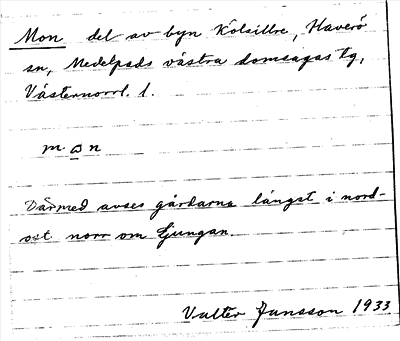 Mon del av byn Kölsillre, Haverö
sn, Medelpads västra domsagas tg,
Västernorrl. l.
m ω n
Därmed avses gårdarna längst i nord-
ost norr om Ljungan
Valter Jansson 1933